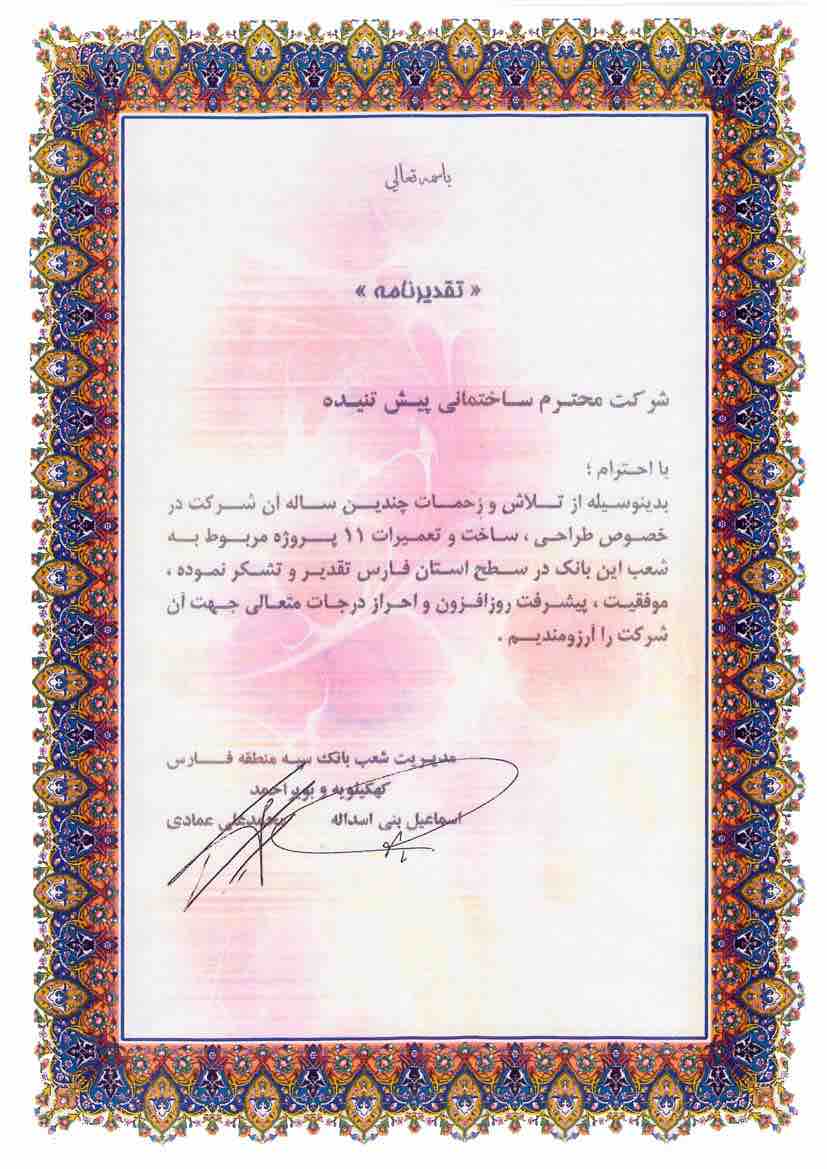 باسمه تعالی
« تقدیرنامه »
شرکت محترم ساختمانی پیش تنیده
با احترام ؛
بدینوسیله از تلاش و زحمات چندین ساله آن شرکت در
خصوص طراحی ، ساخت و تعمیرات ۱۱ پروژه مربوط به
شعب این بانک در سطح استان فارس تقدیر و تشکر نموده ،
موفقیت ، پیشرفت روزافزون و احراز درجات متعالی جهت آن
شرکت را آرزومندیم .
مدیریت شعب بانک سپه منطقه فارس
کهگیلویه و بویر احمد
اسماعیل بنی اسداله محمدعلی عمادی